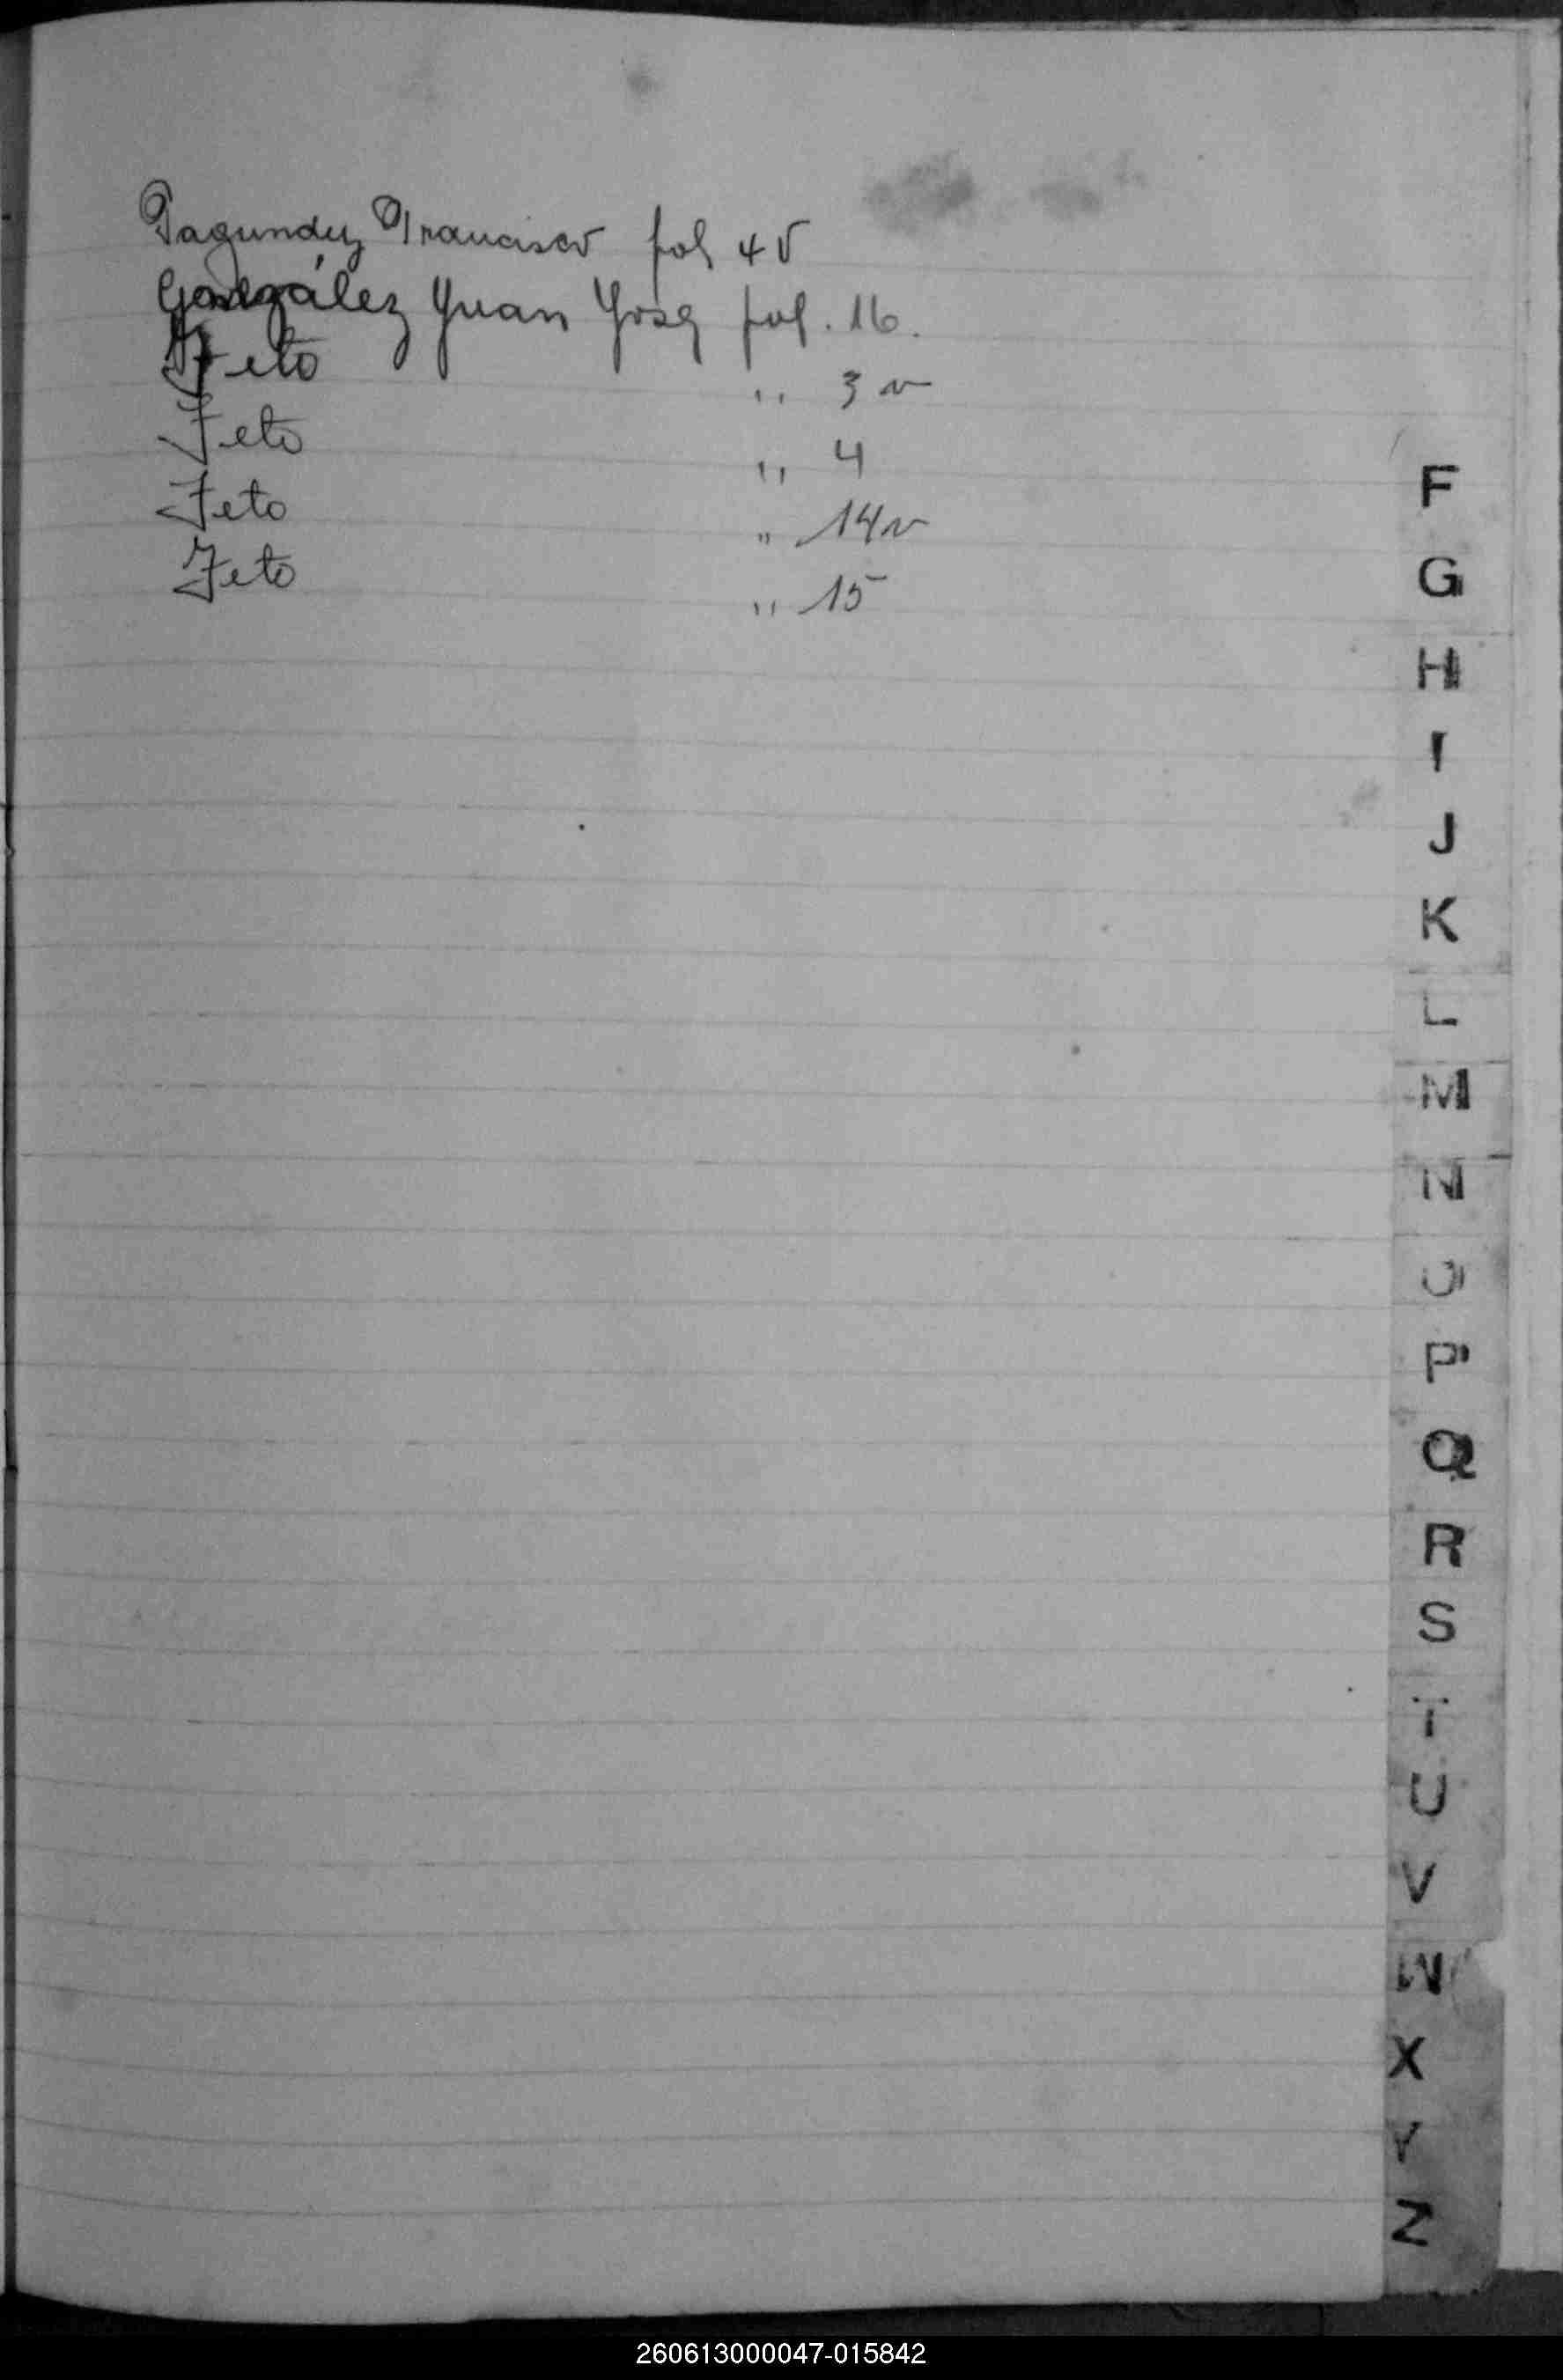 Fagundez Francisco fol 4 V
González Juan José fol. 16.
Feto " 3 v
Feto " 4
Feto " 14 v
Feto " 15
F
G
H
I
J
K
L
M
N
O
P
Q
R
S
T
U
V
W
X
Y
Z
260613000047-015842